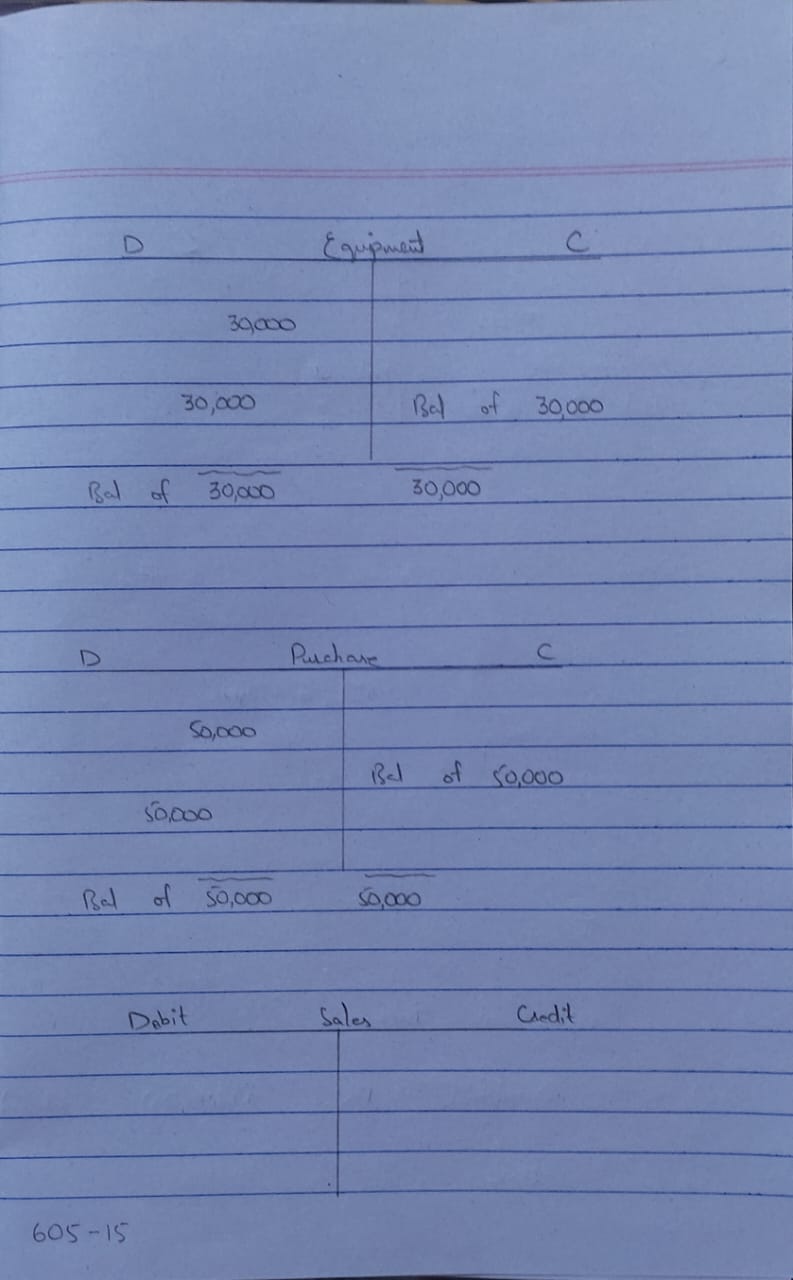 D Equipment C
30,000
30,000 Bal of 30,000
Bal of 30,000 30,000
D Purchase C
50,000
Bal of 50,000
50,000
Bal of 50,000 50,000
Debit Sales Credit
605-15